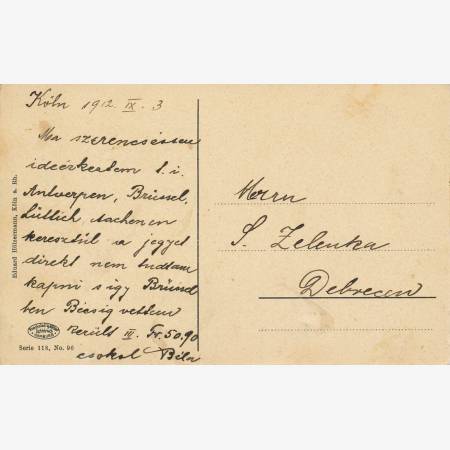 Köln 1912. IX. 3
Ma szerencsésen
ideérkeztem t. i.
Antwerpen, Brüssel,
Lüttich Aachenen
keresztül a jegyet
direkt nem tudtam
kapni s így Brüssel
ben Bécsig vettem
került III. Fr. 50.90
csokol Béla
Herrn
S. Zelenka
Debrecen
Eduard Hültzermann, Köln a. Rh.
Serie 118, No. 96